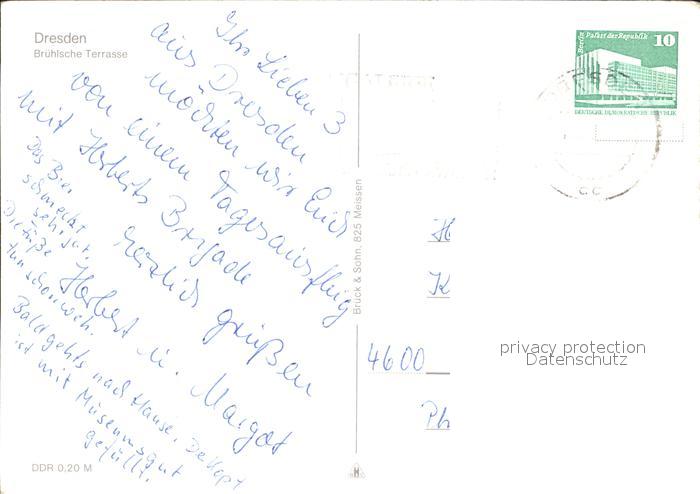 Dresden
Brühlsche Terrasse
Ihr Lieben 3
aus Dresden
möchten wir Euch
von einem Tagesausflug
mit Herberts Brigade
herzlich grüßen
Herbert u. Margot
Das Bier
schmeckt
sehr gut.
Die Füße
tun schon weh.
Bald gehts nach Hause. De Kopf
ist mit Museumsgut
gefüllt.
DDR 0,20 M
Brück & Sohn, 825 Meissen
Berlin Palast der Republik 10
DEUTSCHE DEMOKRATISCHE REPUBLIK
H
K
4600
Ph
privacy protection
Datenschutz